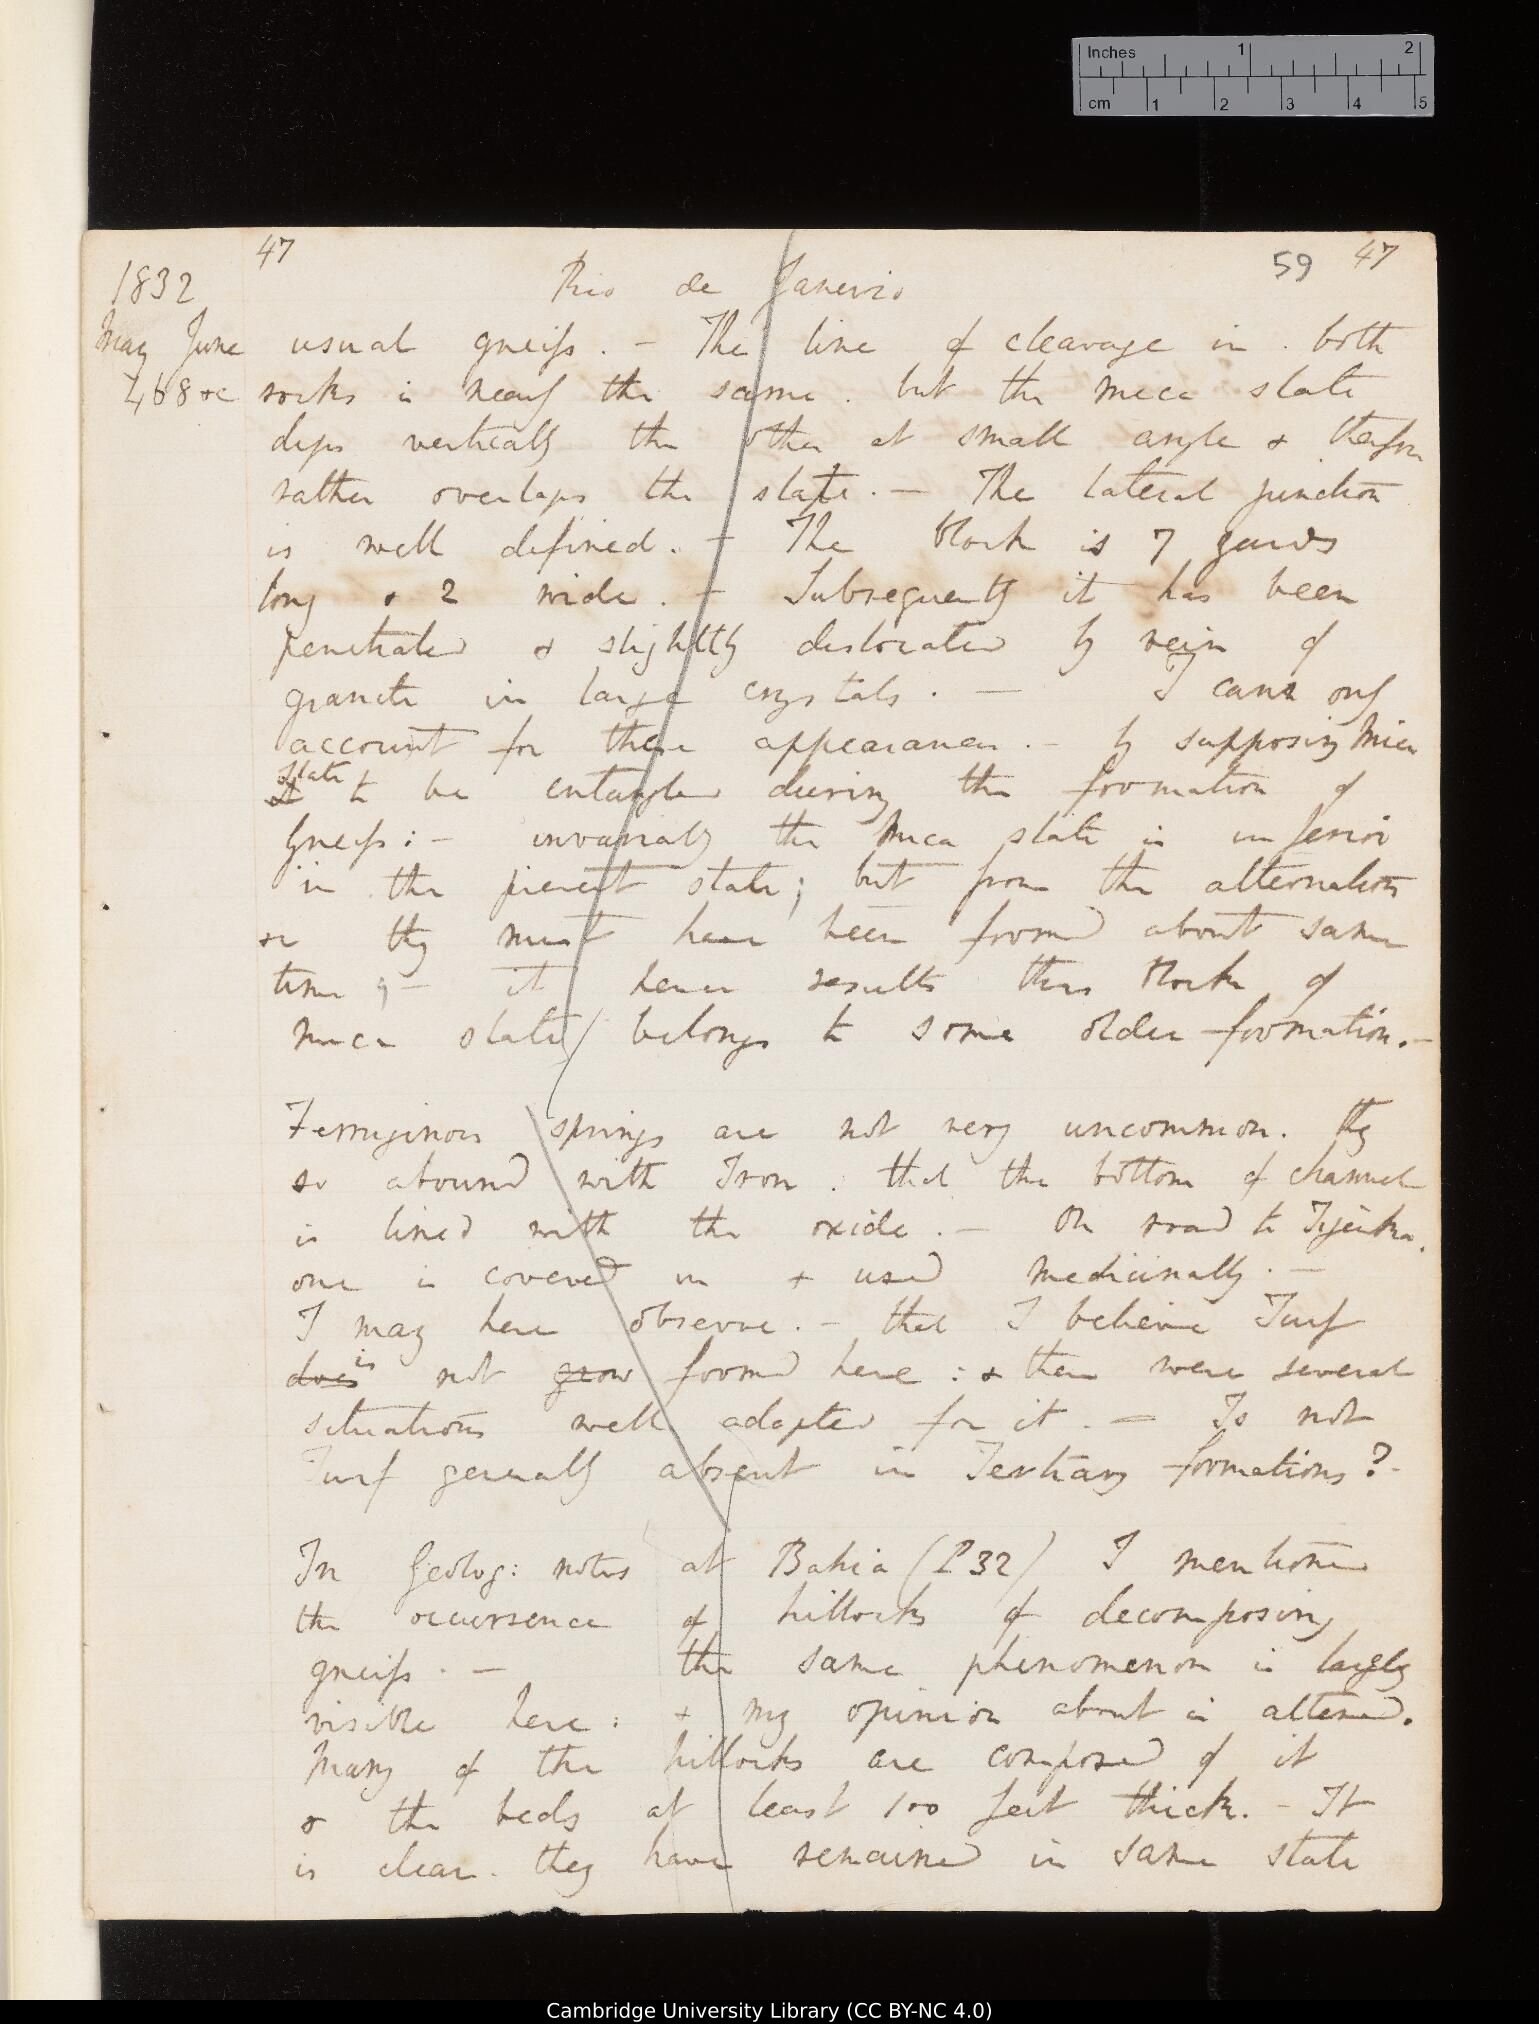 Inches 1 2
cm 1 2 3 4 5
47 59 47
1832 Rio de Janeiro
May June usual gneiss. — The line of cleavage in both
468 &c rocks is nearly the same. but the mica slate
dips vertically the other at small angle & therefore
rather overlaps the slate. — The lateral junction
is well defined. — The block is 7 yards
long & 2 wide. — Subsequently it has been
penetrated & slightly dislocated by vein of
granite in large crystals. — I can only
account for these appearances. — by supposing Mica
slate to be entangled during the formation of
Gneiss: — invariably the Mica slate is inferior
in the present state; but from the alternations
&c they must have been formed about same
time; — it hence results this block of
mica slate belongs to some older formation. —
Ferruginous springs are not very uncommon. they
so abound with Iron. that the bottom of channel
is lined with the oxide. — On road to Tijeuka.
one is covered in & used medicinally. —
I may here observe. — that I believe Turf
does is not grow formed here: & there were several
situations well adapted for it. — Is not
Turf generally absent in Tertiary formations? —
In Geolog: notes at Bahia (P 32) I mentioned
the occurrence of hillocks of decomposing
gneiss. — the same phenomenon is largely
visible here: & my opinion about is altered.
Many of the hillocks are composed of it
& the beds at least 100 feet thick. — It
is clear. they have remained in same state
Cambridge University Library (CC BY-NC 4.0)